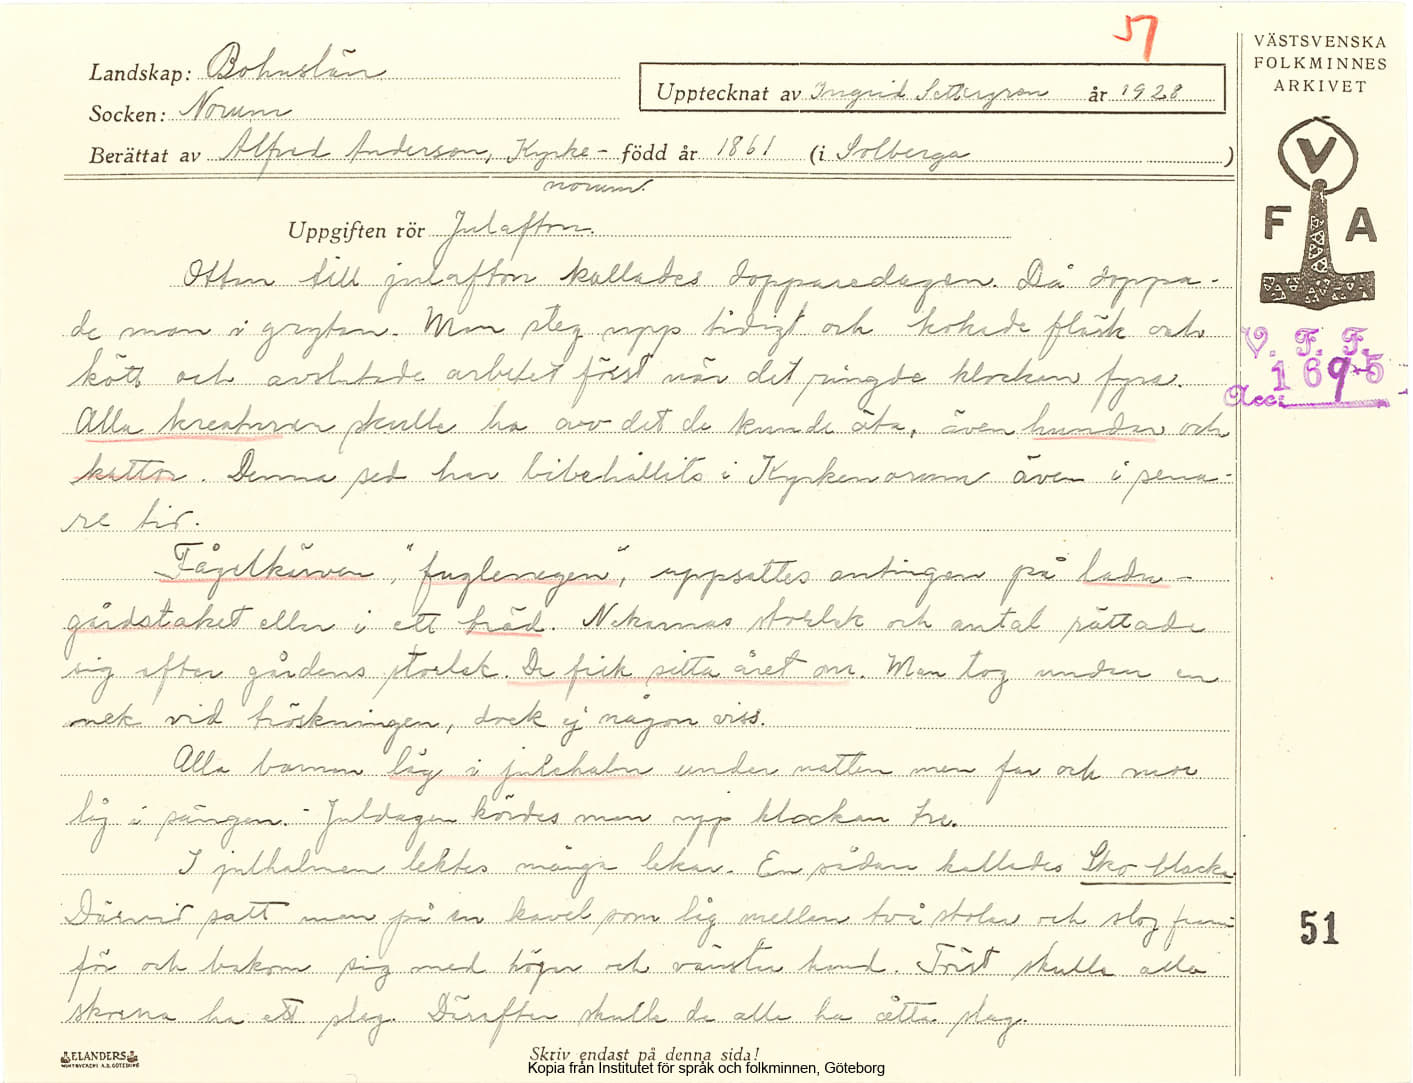 57
VÄSTSVENSKA
FOLKMINNES
ARKIVET
Landskap: Bohuslän
Upptecknat av Ingrid Settergren år 1928
Socken: Norum
Berättat av Alfred Anderson, Kyrke- född år 1861 (i Solberga )
norum.
Uppgiften rör Julafton.
V
F A
V. F. F.
1695
Acc:
Ottan till julafton kallades dopparedagen. Då doppa-
de man i grytan. Man steg upp tidigt och kokade fläsk och
kött och avslutade arbetet först när det ringde klockan fyra.
Alla kreaturen skulle ha avv det de kunde äta, även hundar och
kattor. Denna sed har bibehållits i Kyrkenorum även i sena-
re tid.
Fågelkärven, "fuglenegen", uppsattes antingen på ladu-
gårdstaket eller i ett träd. Nekarnas storlek och antal rättade
sig efter gårdens storlek. De fick sitta året om. Man tog undan en
nek vid tröskningen, dock ej någon viss.
Alla barnen låg i julehalm under natten men far och mor
låg i sängen. - Juldagen kördes man upp klockan tre.
I julhalmen lektes många lekar. En sådan kallades Sko blacka
Därvid satt man på en kavel som låg mellan två stolar och slog fram-
för och bakom sig med höger och vänster hand. Först skulle alla
skorna ha ett slag. Därefter skulle de alla ha åtta slag.
51
ELANDERS
BOKTRYCKERI A.B. GÖTEBORG
Skriv endast på denna sida!
Kopia från Institutet för språk och folkminnen, Göteborg